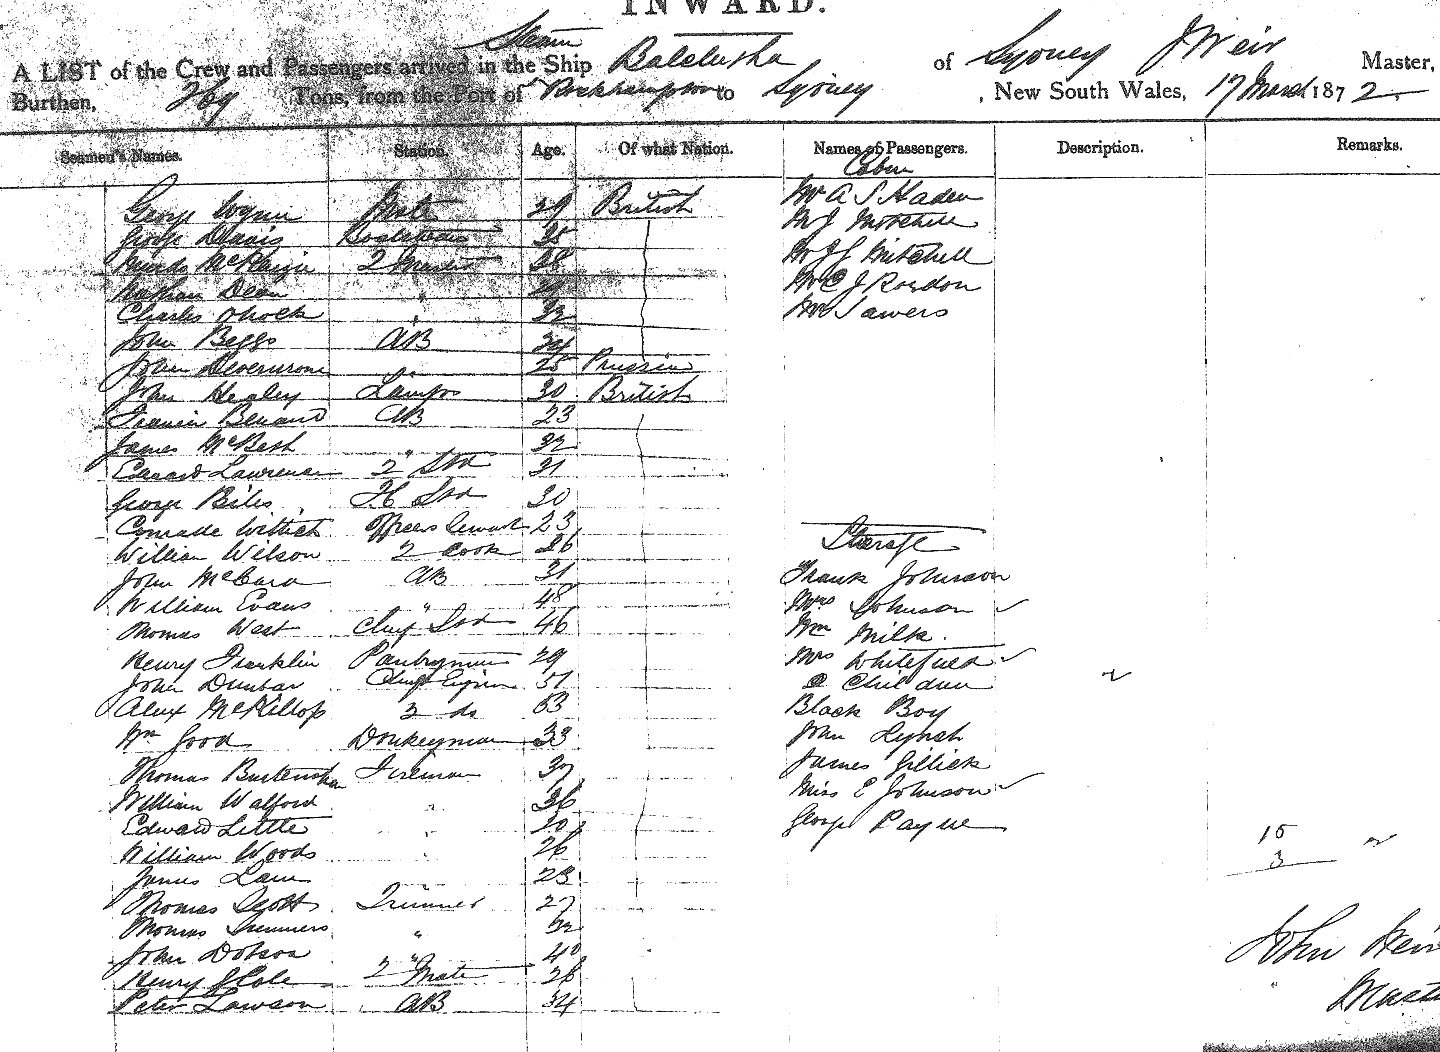 INWARD.
Steam
A LIST of the Crew and Passengers arrived in the Ship Balclutha of Sydney J Weir Master,
Burthen, Tons, from the Port of Rockhampton to Sydney, New South Wales, 17 March 1872
Seamen's Names. Station. Age. Of what Nation. Names of Passengers. Description. Remarks.
Cabin
George 29 British Mr A S Haden
George Davis 35 Mr J Mitchell
28 Mr J Mitchell
Nathan Dean " Mr C J Rordon
Charles 32 Mr Sawers
John Beggs AB 24
John 25 Prussian
John Healey Lamps 30 British
Francis AB 23
James McBeth " 32
Edward Lawrence 2 Std 31
George Biles 30
Conrade Wittich Officers Steward 23
William Wilson 2 Cook 26 Steerage
John McCara AB 31 Frank Johnson
William Evans " 48 Mrs Johnson
Thomas West Chief Std 46 Wm Milk.
Henry Franklin Pantryman 29 Mrs
John Dunbar Chief Engineer 51 Children
Alex McKillop 2 do 53 Black Boy
Wm Good Donkeyman 33 John Lynch
Thomas Fireman 37 James Gillick
William Walford " 36 Miss E Johnson
Edward Little " 30 George Payne
William Woods " 26 15
James 23 3
Thomas Scott Trimmer 27
Thomas Summers " 32
John Dobson " 42 John Weir
Henry J Cole 2 Mate 28
Peter Lawson AB 34 Mast